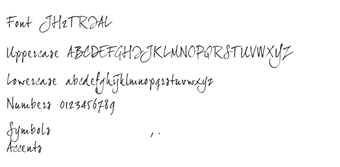 Font JH2TRIAL
Uppercase ABCDEFGHIJKLMNOPQRSTUVWXYZ
Lowercase abcdefghijklmnopqrstuvwxyz
Numbers 0123456789
Symbols , .
Accents